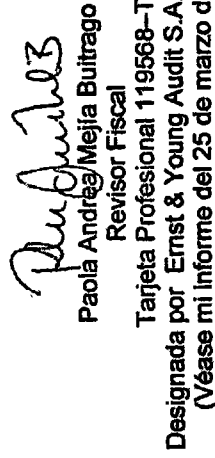 Paola Andrea Mejía Buitrago
Revisor Fiscal
Tarjeta Profesional 119568–T
Designada por Ernst & Young Audit S.A
(Véase mi Informe del 25 de marzo d